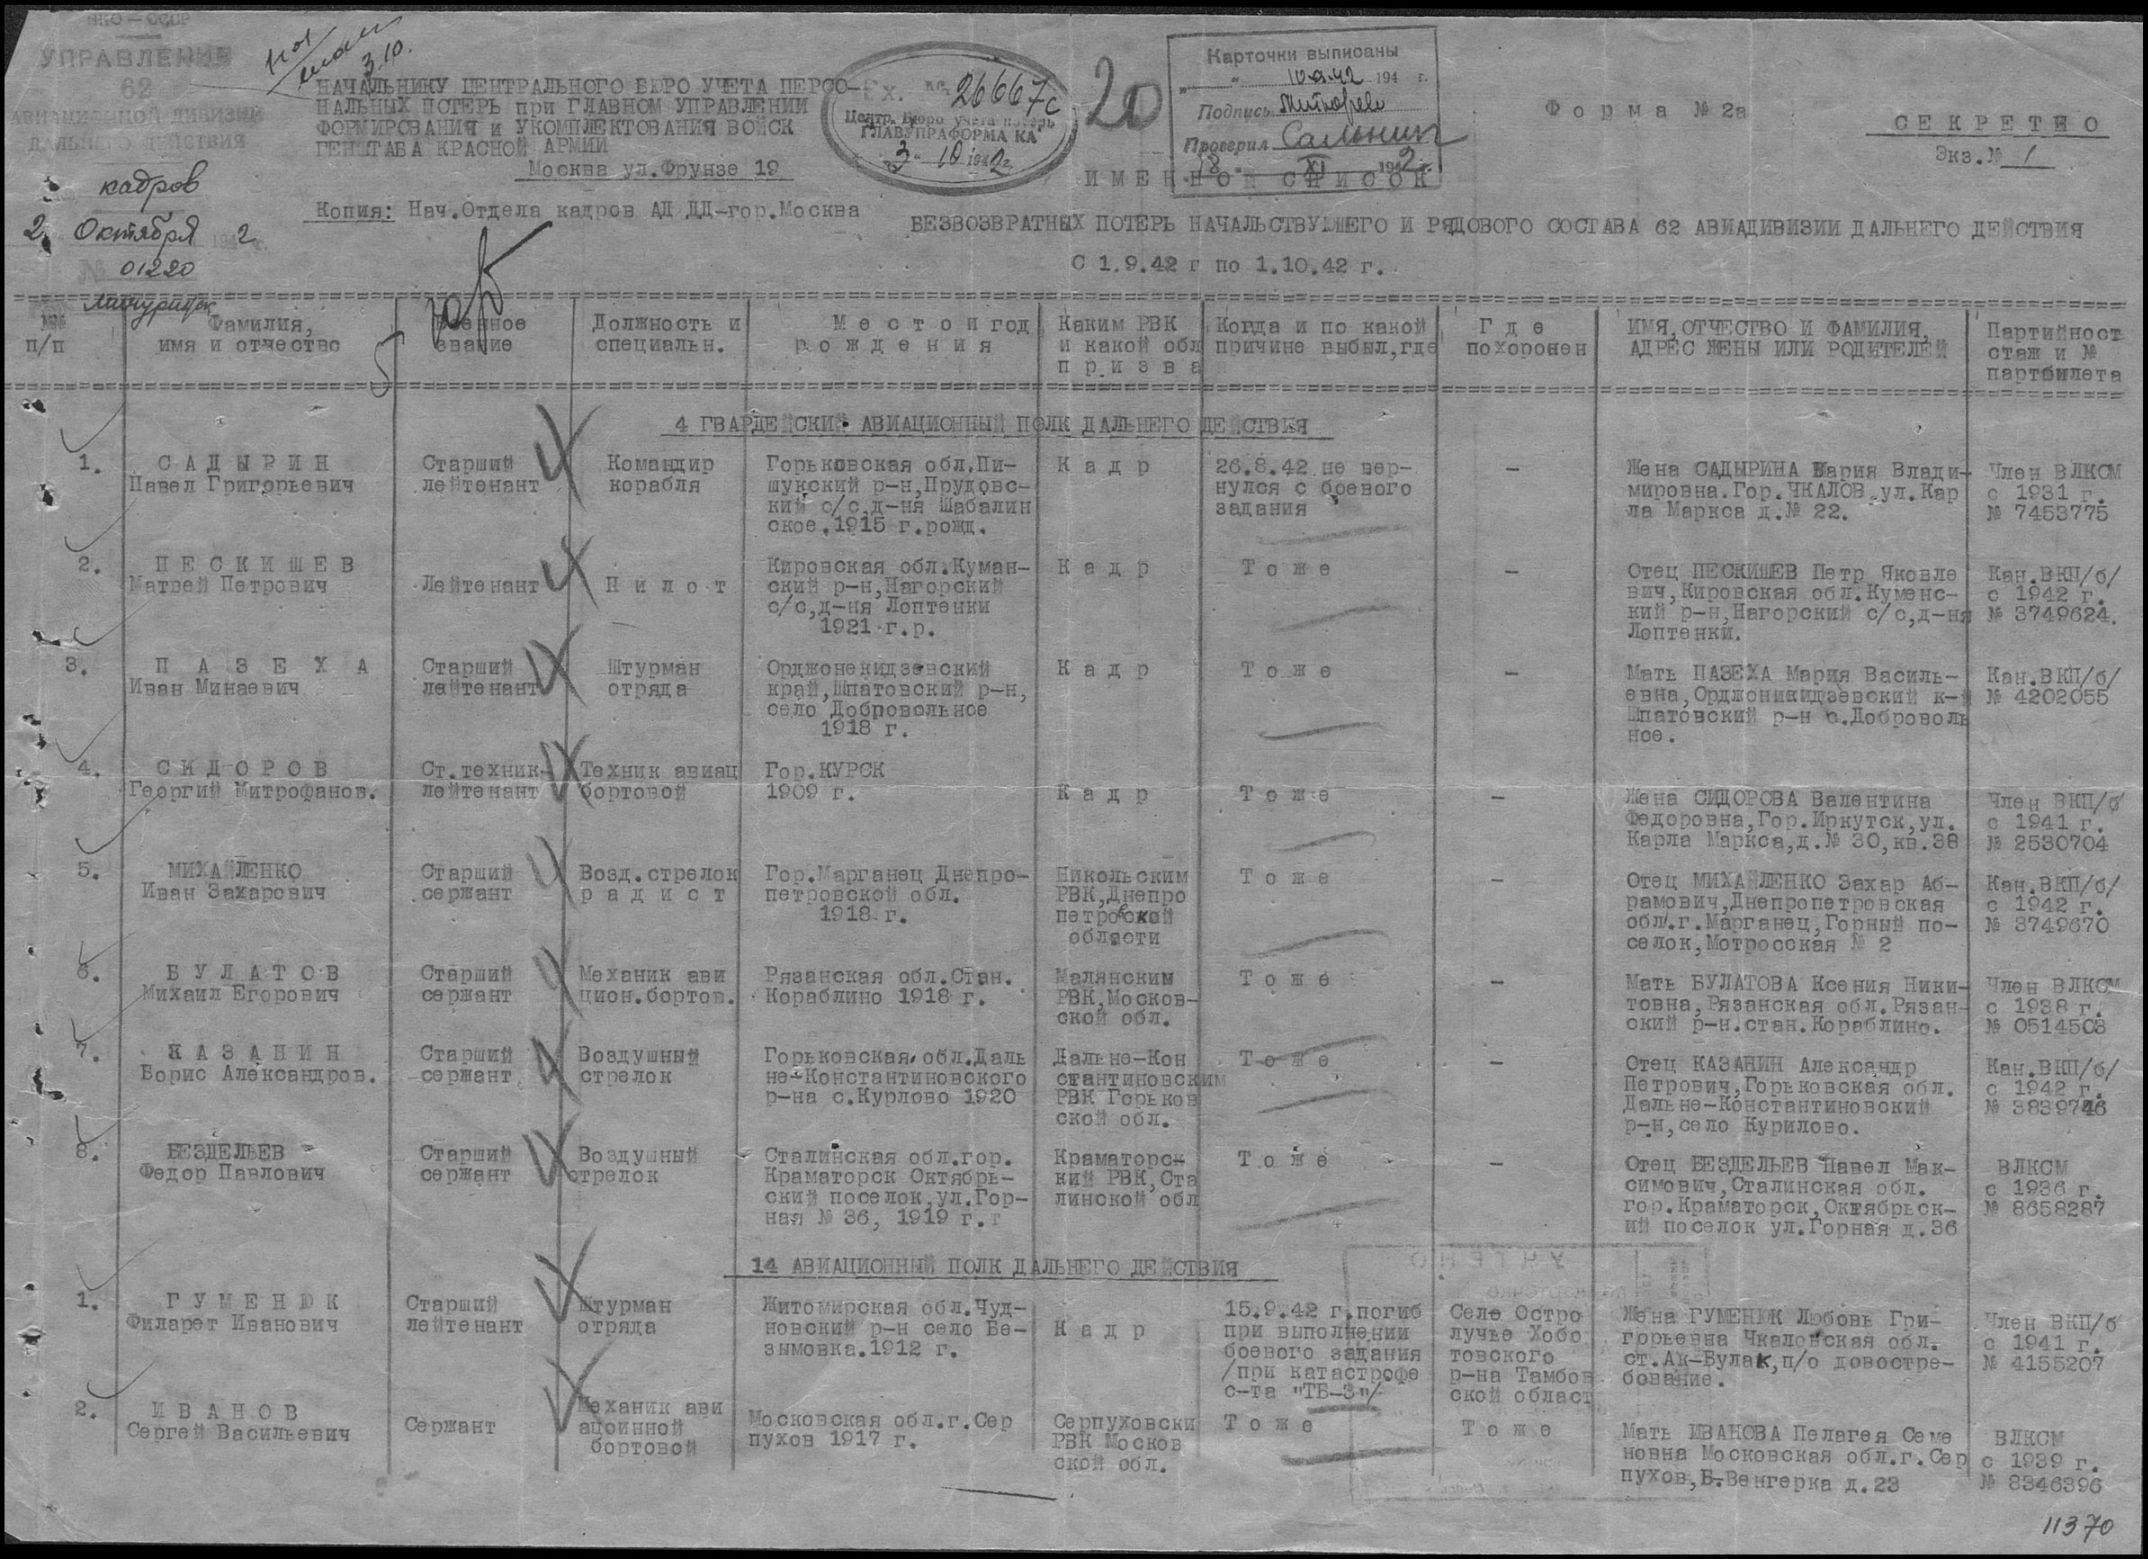 НКО — СССР
УПРАВЛЕНИЕ
62
АВИАЦИОННОЙ ДИВИЗИИ
ДАЛЬНЕГО ДЕЙСТВИЯ
кадров
2 Октября 1942 г.
№ 01220
3.10.
НАЧАЛЬНИКУ ЦЕНТРАЛЬНОГО БЮРО УЧЕТА ПЕРСО-
НАЛЬНЫХ ПОТЕРЬ при ГЛАВНОМ УПРАВЛЕНИИ
ФОРМИРОВАНИЯ и УКОМПЛЕКТОВАНИЯ ВОЙСК
ГЕНШТАБА КРАСНОЙ АРМИИ
Москва ул.Фрунзе 19
Копия: Нач.Отдела кадров АД ДД-гор.Москва
Вх. № 26667с
Центр. Бюро учета потерь
ГЛАВУПРАФОРМА КА
"3" 10 1942 г.
20
Карточки выписаны
" 10.9.42 194 г.
Подпись
Проверил
18 " XI 1942 г.
Форма № 2а
СЕКРЕТНО
Экз.№ 1
ИМЕННОЙ СПИСОК
БЕЗВОЗВРАТНЫХ ПОТЕРЬ НАЧАЛЬСТВУЮЩЕГО И РЯДОВОГО СОСТАВА 62 АВИАДИВИЗИИ ДАЛЬНЕГО ДЕЙСТВИЯ
С 1.9.42 г по 1.10.42 г.
№№
п/п
Фамилия,
имя и отчество
Военное
звание
Должность и
специальн.
Место и год
рождения
Каким РВК
и какой обл
призва
Когда и по какой
причине выбыл,где
Где
похоронен
ИМЯ,ОТЧЕСТВО И ФАМИЛИЯ,
АДРЕС ЖЕНЫ ИЛИ РОДИТЕЛЕЙ
Партийност
стаж и №
партбилета
4 ГВАРДЕЙСКИЙ АВИАЦИОННЫЙ ПОЛК ДАЛЬНЕГО ДЕЙСТВИЯ
1.
САДЫРИН
Павел Григорьевич
Старший
лейтенант
Командир
корабля
Горьковская обл.Пи-
шукский р-н,Прудовс-
кий с/с,д-ня Шабалин
ское.1915 г.рожд.
Кадр
26.8.42 не вер-
нулся с боевого
задания
-
Жена САДЫРИНА Мария Влади-
мировна.Гор.ЧКАЛОВ.ул.Кар
ла Маркса д.№ 22.
Член ВЛКСМ
с 1931 г.
№ 7453775
2.
ПЕСКИШЕВ
Матвей Петрович
Лейтенант
Пилот
Кировская обл.Куман-
ский р-н,Нагорский
с/с,д-ня Лоптенки
1921 г.р.
Кадр
Тоже
-
Отец ПЕСКИШЕВ Петр Яковле
вич,Кировская обл.Куменс-
кий р-н,Нагорский с/с,д-ня
Лоптенки.
Кан.ВКП/б/
с 1942 г.
№ 3749624.
3.
ПАЗЕХА
Иван Минаевич
Старший
лейтенант
Штурман
отряда
Орджонекидзевский
край,Шпатовский р-н,
село Добровольное
1918 г.
Кадр
Тоже
-
Мать ПАЗЕХА Мария Василь-
евна,Орджоникидзевский к-й
Шпатовский р-н с.Доброволь
ное.
Кан.ВКП/б/
№ 4202055
4.
СИДОРОВ
Георгий Митрофанов.
Ст.техник-
лейтенант
Техник авиац
бортовой
Гор.КУРСК
1909 г.
Кадр
Тоже
-
Жена СИДОРОВА Валентина
Федоровна,Гор.Иркутск,ул.
Карла Маркса,д.№ 30,кв.38
Член ВКП/б
с 1941 г.
№ 2530704
5.
МИХАЙЛЕНКО
Иван Захарович
Старший
сержант
Возд.стрелок
радист
Гор.Марганец Днепро-
петровской обл.
1918 г.
Никольским
РВК,Днепро
петровской
области
Тоже
-
Отец МИХАЙЛЕНКО Захар Аб-
рамович,Днепропетровская
обл.г.Марганец,Горный по-
селок,Мотросская № 2
Кан.ВКП/б/
с 1942 г.
№ 3749670
6.
БУЛАТОВ
Михаил Егорович
Старший
сержант
Механик ави
цион.бортов.
Рязанская обл.Стан.
Кораблино 1918 г.
Малянским
РВК,Москов-
ской обл.
Тоже
-
Мать БУЛАТОВА Ксения Ники-
товна,Рязанская обл.Рязан-
ский р-н.стан.Кораблино.
Член ВЛКСМ
с 1938 г.
№ 0514503
7.
КАЗАНИН
Борис Александров.
Старший
сержант
Воздушный
стрелок
Горьковская обл.Даль
не-Константиновского
р-на с.Курлово 1920
Дальне-Кон
стантиновским
РВК Горьков
ской обл.
Тоже
-
Отец КАЗАНИН Александр
Петрович,Горьковская обл.
Дальне-Константиновский
р-н,село Курилово.
Кан.ВКП/б/
с 1942 г.
№ 3839746
8.
БЕЗДЕЛЬЕВ
Федор Павлович
Старший
сержант
Воздушный
стрелок
Сталинская обл.гор.
Краматорск Октябрь-
ский поселок,ул.Гор-
ная № 36, 1919 г.г
Краматорск-
кий РВК,Ста
линской обл
Тоже
-
Отец БЕЗДЕЛЬЕВ Павел Мак-
симович,Сталинская обл.
гор.Краматорск,Октябрьск-
ий поселок ул.Горная д.36
ВЛКСМ
с 1936 г.
№ 8658287
14 АВИАЦИОННЫЙ ПОЛК ДАЛЬНЕГО ДЕЙСТВИЯ
1.
ГУМЕНЮК
Филарет Иванович
Старший
лейтенант
Штурман
отряда
Житомирская обл.Чуд-
новский р-н село Бе-
зымовка.1912 г.
Кадр
15.9.42 г.погиб
при выполнении
боевого задания
/при катастрофе
с-та "ТБ-3"/
Село Остро
лучье Хобо
товского
р-на Тамбов
ской област
Жена ГУМЕНЮК Любовь Гри-
горьевна Чкаловская обл.
ст.Ак-Булак,п/о довостре-
бование.
Член ВКП/б
с 1941 г.
№ 4155207
2.
ИВАНОВ
Сергей Васильевич
Сержант
Механик ави
ацоинной
бортовой
Московская обл.г.Сер
пухов 1917 г.
Серпуховски
РВК Москов
ской обл.
Тоже
Тоже
Мать ИВАНОВА Пелагея Семе
новна Московская обл.г.Сер
пухов,Б.Венгерка д.23
ВЛКСМ
с 1939 г.
№ 8346396
11370